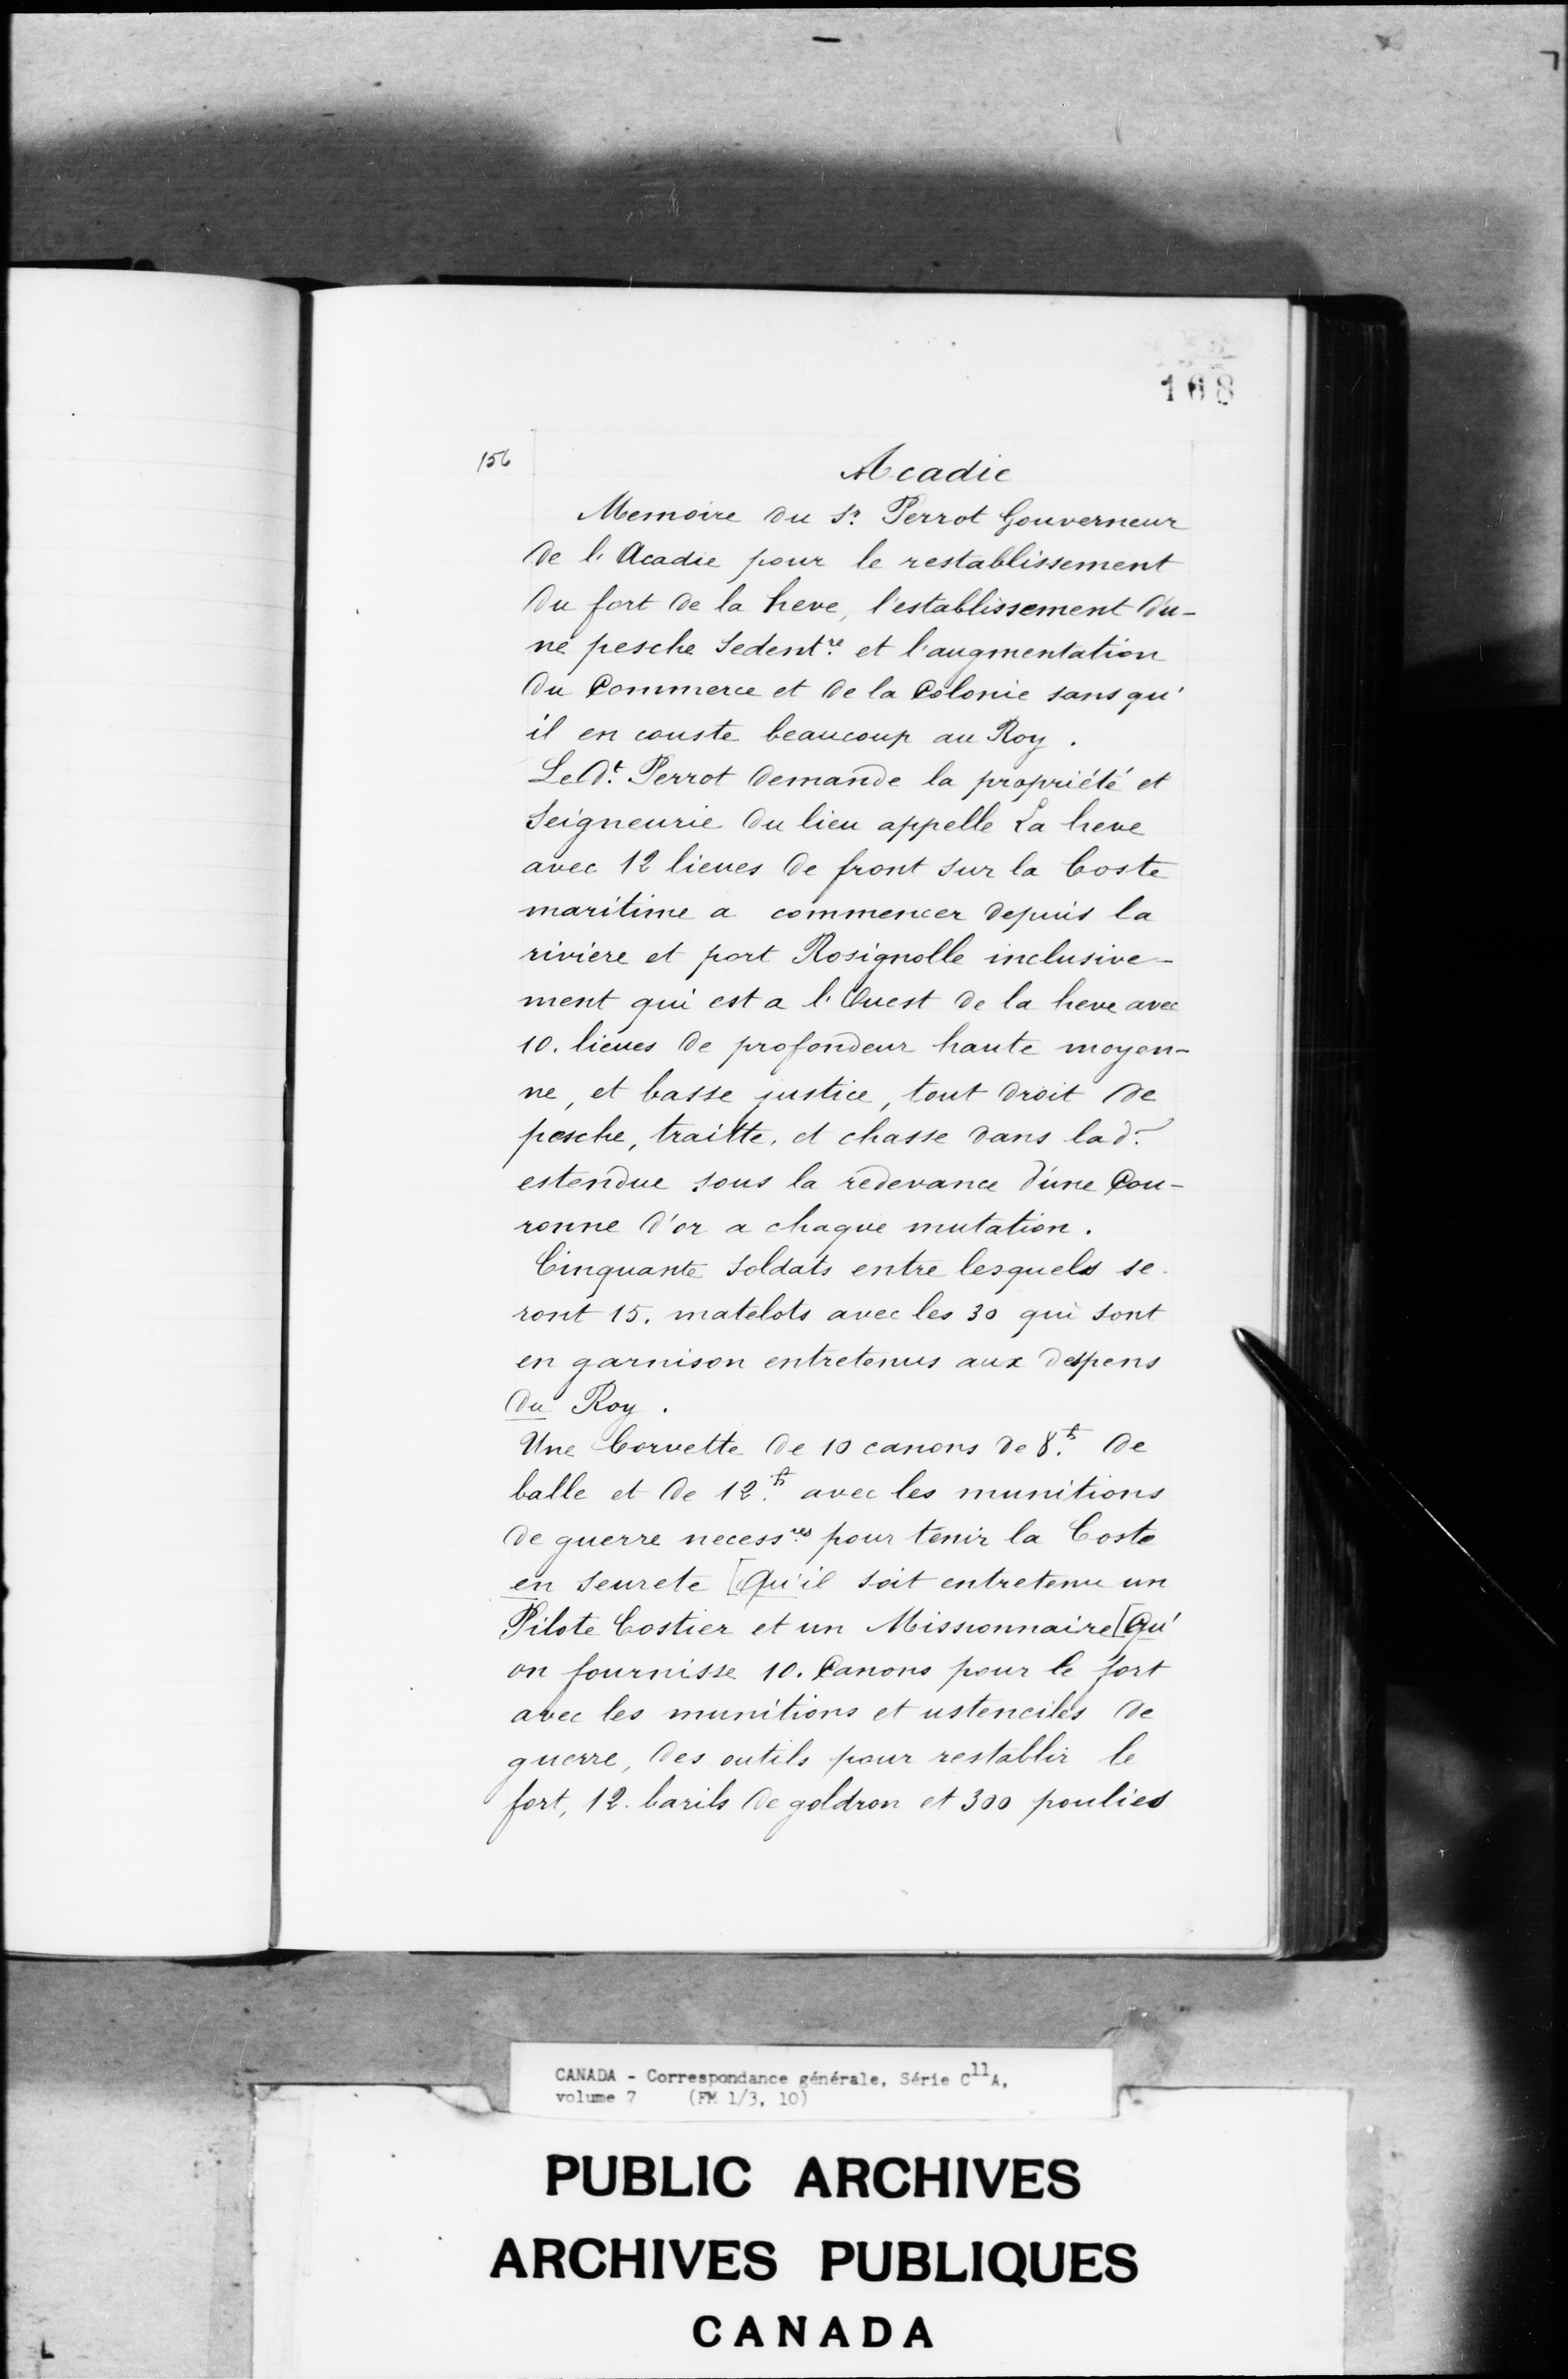 108
156
Acadie
Memoire du Sr. Perrot Gouverneur
de l'Acadie pour le restablissement
du fort de la heve, l'establissement du-
ne pesche sedentre. et l'augmentation
du Commerce et de la Colonie sans qu'
il en couste beaucoup au Roy.
Led.t Perrot demande la propriété et
Seigneurie du lieu appelle La heve
avec 12 lieues de front sur la Coste
maritime a commencer depuis la
riviere et port Rosignolle inclusive-
ment qui est a l'Ouest de la heve avec
10. lieues de profondeur haute moyen-
ne, et basse justice, tout droit de
pesche, traitte, et chasse dans lad.
estendue sous la redevance d'une Cou-
ronne d'or a chaque mutation.
Cinquante soldats entre lesquels se-
ront 15. matelots avec les 30 qui sont
en garnison entretenus aux despens
du Roy.
Une Corvette de 10 canons de 8.₶ de
balle et de 12.₶ avec les munitions
de guerre necessres. pour tenir la Coste
en seurete [Qu'il soit entretenu un
Pilote Costier et un Missionnaire [Qu'
on fournisse 10. Canons pour le fort
avec les munitions et ustenciles de
guerre, des outils pour restablir le
fort, 12. barils de goldron et 300 poulies
CANADA - Correspondance générale, Série C11A,
volume 7 (FM 1/3, 10)
PUBLIC ARCHIVES
ARCHIVES PUBLIQUES
CANADA